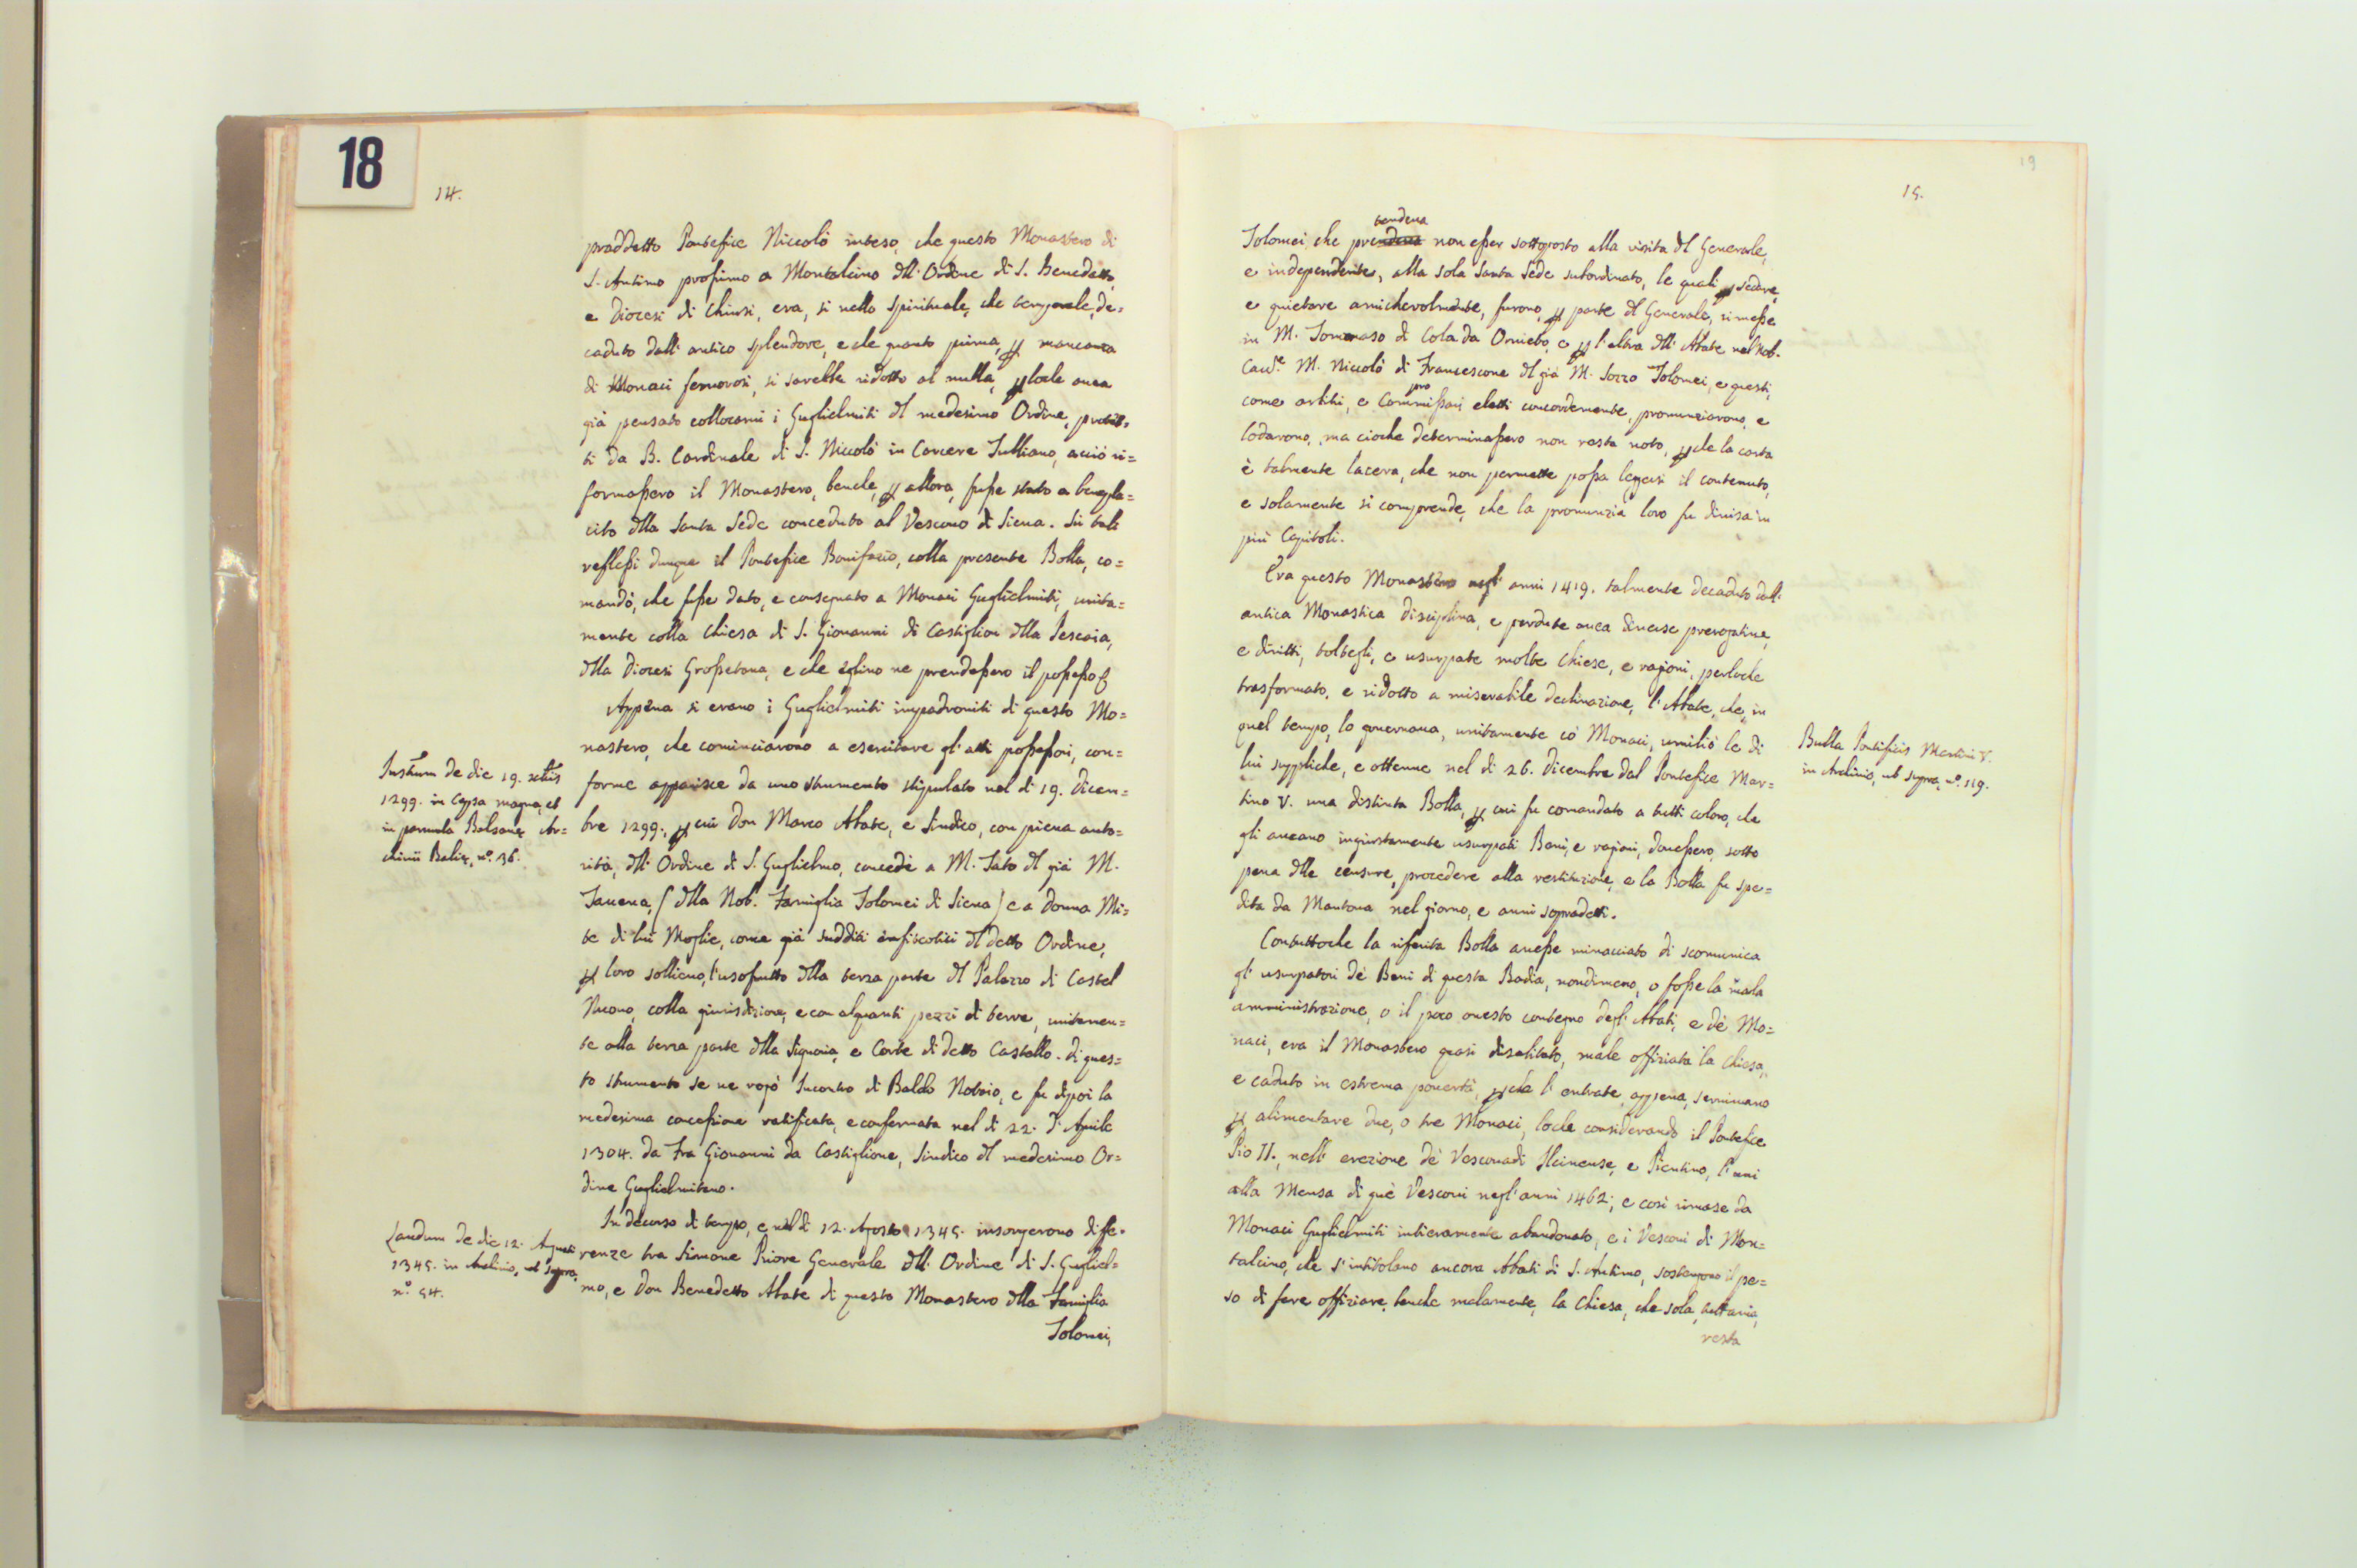 18
14.
praddetto Pontefice Niccolò inteso, che questo Monastero di
S. Antimo prossimo a Montalcino dll' Ordine di S. Benedetto,
e Diocesi di Chiusi, era, sì nello spirituale, che temporale, de=
caduto dall' antico splendore, e che quanto prima, p mancanza
di Monaci fervorosi, si sarebbe ridotto al nulla, p loche avea
già pensato collocarvi i Guglielmiti dl medesimo Ordine,
ti da B. Cardinale di S. Niccolò in Carcere Tulliano, acciò ri=
formassero il Monastero, benche, p allora, fusse stato a benepla=
cito dlla Santa Sede conceduto al Vescovo di Siena. Su tali
reflessi dunque il Pontefice Bonifazio, colla presente Bolla, co=
mandò, che fusse dato, e consegnato a Monaci Guglielmiti, unita=
mente colla Chiesa di S. Giovanni di Castiglion dlla Pescaia,
dlla Diocesi Grossetana, e che eglino ne prendessero il possesso
Appena si erano i Guglielmiti impadroniti di questo Mo=
nastero, che cominciarono a esercitare gl' atti possessori, con=
Instrum de die 19. xbris
1299. in Capsa magna, et
in parvula Balzana, Ar=
chivii Baliæ, nº. 36.
forme apparisce da uno strumento stipulato nel dì 19. Dicem=
bre 1299., p cui Don Marco Abate, e Sindico, con piena auto=
rità, dll' Ordine di S. Guglielmo, concedè a M. Tato dl già M.
Tavena, (dlla Nob. Famiglia Tolomei di Siena) e a Donna Mi=
te di lui Moglie, come già sudditi enfiteotici dl detto Ordine,
p loro sollievo, l'usofrutto dlla terza parte dl Palazzo di Castel
Nuovo, colla giurisdizione, e con alquanti pezzi di terre, unitamen=
te alla terza parte dlla Signoria, e Corte di detto Castello. Di ques=
to strumento se ne rogò Incontro di Baldo Notaio, e fu dipoi la
medesima concessione ratificata, e confermata nel dì 22. d' Aprile
1304. da Fra Giovanni da Castiglione, Sindico dl medesimo Or=
dine Guglielmitano.
In decorso di tempo, e nel dì 12. Agosto 1345. insorgerono diffe=
Laudum de die 12. Agusti
1345. in Archivio, ut supra,
nº. 54.
renze tra Simone Priore Generale dll' Ordine di S. Gugliel=
mo, e Don Benedetto Abate di questo Monastero dlla Famiglia
Tolomei,
19
15.
tendeva
Tolomei, che prendeva non esser sottoposto alla visita dl Generale,
e independente, alla sola Santa Sede subordinato, le quali p sedare,
e quietare amichevolmente, furono, p parte dl Generale, rimesse
in M. Tommaso di Cola da Orvieto, e p l'altra dll' Abate nel Nob.
Cavre. M. Niccolò di Francescone dl già M. Sozzo Tolomei, e questi,
pro
come arbitri, e Commissari eletti concordemente, pronunziarono, e
lodarono, ma cioche determinassero non resta noto, p che la carta
è talmente lacera, che non permette possa legersi il contenuto,
e solamente si comprende, che la pronunzia loro fu divisa in
più Capitoli.
Era questo Monastero negl' anni 1419. talmente decaduto dall'
antica Monastica disciplina, e perdute avea diverse prerogative,
e diritti, toltegli, e usurpate molte Chiese, e ragioni, perloche
trasformato, e ridotto a miserabile declinazione, l'Abate, che, in
quel tempo, lo governava, unitamente cò Monaci, umiliò le di
lui suppliche, e ottenne nel dì 26. Dicembre dal Pontefice Mar=
Bulla Pontificis Martini V.
in Archivio, ut supra, nº. 119.
tino V. una distinta Bolla, p cui fu comandato a tutti coloro, che
gli aveano ingiustamente usurpati Beni, e ragioni, dovessero, sotto
pena dlle censure, procedere alla restituzione, e la Bolla fu spe=
dita da Mantova nel giorno, e anni sopradetti.
Contuttoche la riferita Bolla avesse minacciato di scomunica
gl' usurpatori dè Beni di questa Badia, nondimeno, o fosse la mala
amministrazione, o il poco onesto contegno degl' Abati, e dè Mo=
naci, era il Monastero quasi disabitato, male offiziata la Chiesa,
e caduto in estrema povertà, p che l' entrate, appena, servivano
p alimentare due, o tre Monaci, loche considerando il Pontefice
Pio II., nell' erezione dè Vescovadi Ilcinense, e Pientino, l'unì
alla Mensa di què Vescovi negl' anni 1462; e così rimase da
Monaci Guglielmiti intieramente abandonato, e i Vescovi di Mon=
talcino, che s'intitolano ancora Abati di S. Antimo, sostengono il pe=
so di fare offiziare, benche malamente, la Chiesa, che sola, tuttavia,
resta